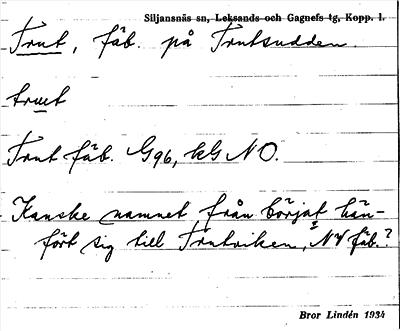 Siljansnäs sn, Leksands och Gagnefs tg, Kopp. l.
Trut, fäb. på Trutsudden.
trut
Trut fäb. G96, kG NO.
Kanske namnet från börjat hän-
fört sig till Trutviken, NV fäb.?
Bror Lindén 1934